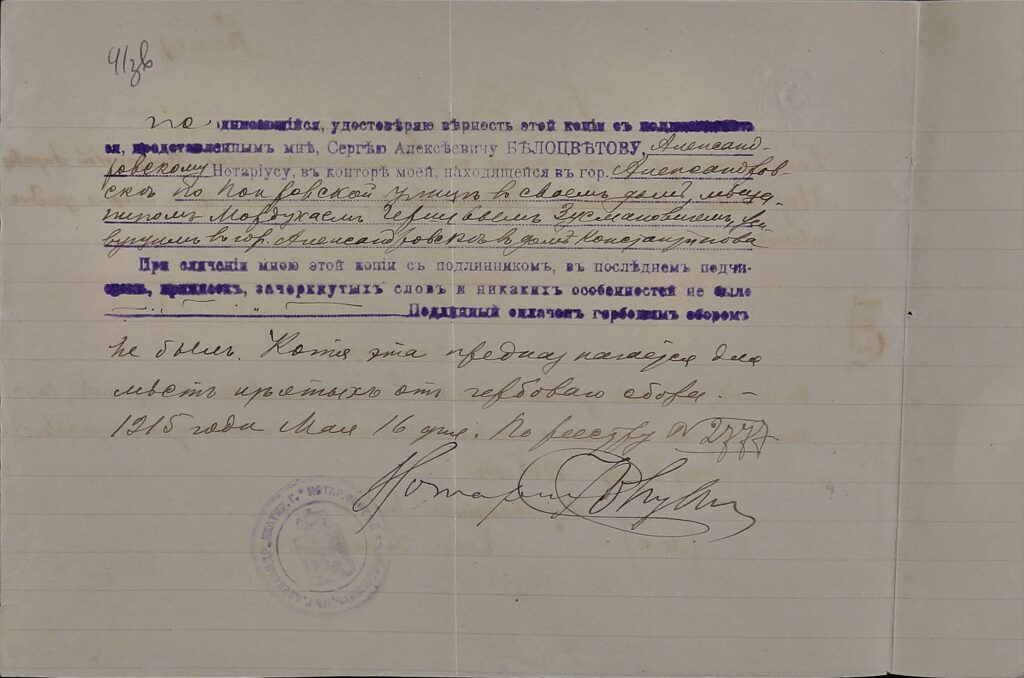 что подписавшійся, удостовѣряю вѣрность этой копіи съ подлинникомъ
ея, представленнымъ мнѣ, Сергѣю Алексѣевичу БѢЛОЦВѢТОВУ, Александ-
ровскому Нотаріусу, въ конторѣ моей, находящейся въ гор. Александров-
скѣ по Покровской улицѣ въ своемъ домѣ, мѣща
ниномъ Мордухаемъ Зусмановичемъ, жи
вущимъ въ гор. Александровскѣ въ домѣ Константинова
При сличеніи мною этой копіи съ подлинникомъ, въ послѣднемъ подчи-
стокъ, приписокъ, зачеркнутыхъ словъ и никакихъ особенностей не было
Подлинный оплаченъ гербовымъ сборомъ
не былъ. Копія эта предназначается для
мѣстъ изъятыхъ отъ гербоваго сбора. –
1915 года Мая 16 дня. По реестру № 2777
Нотаріусъ